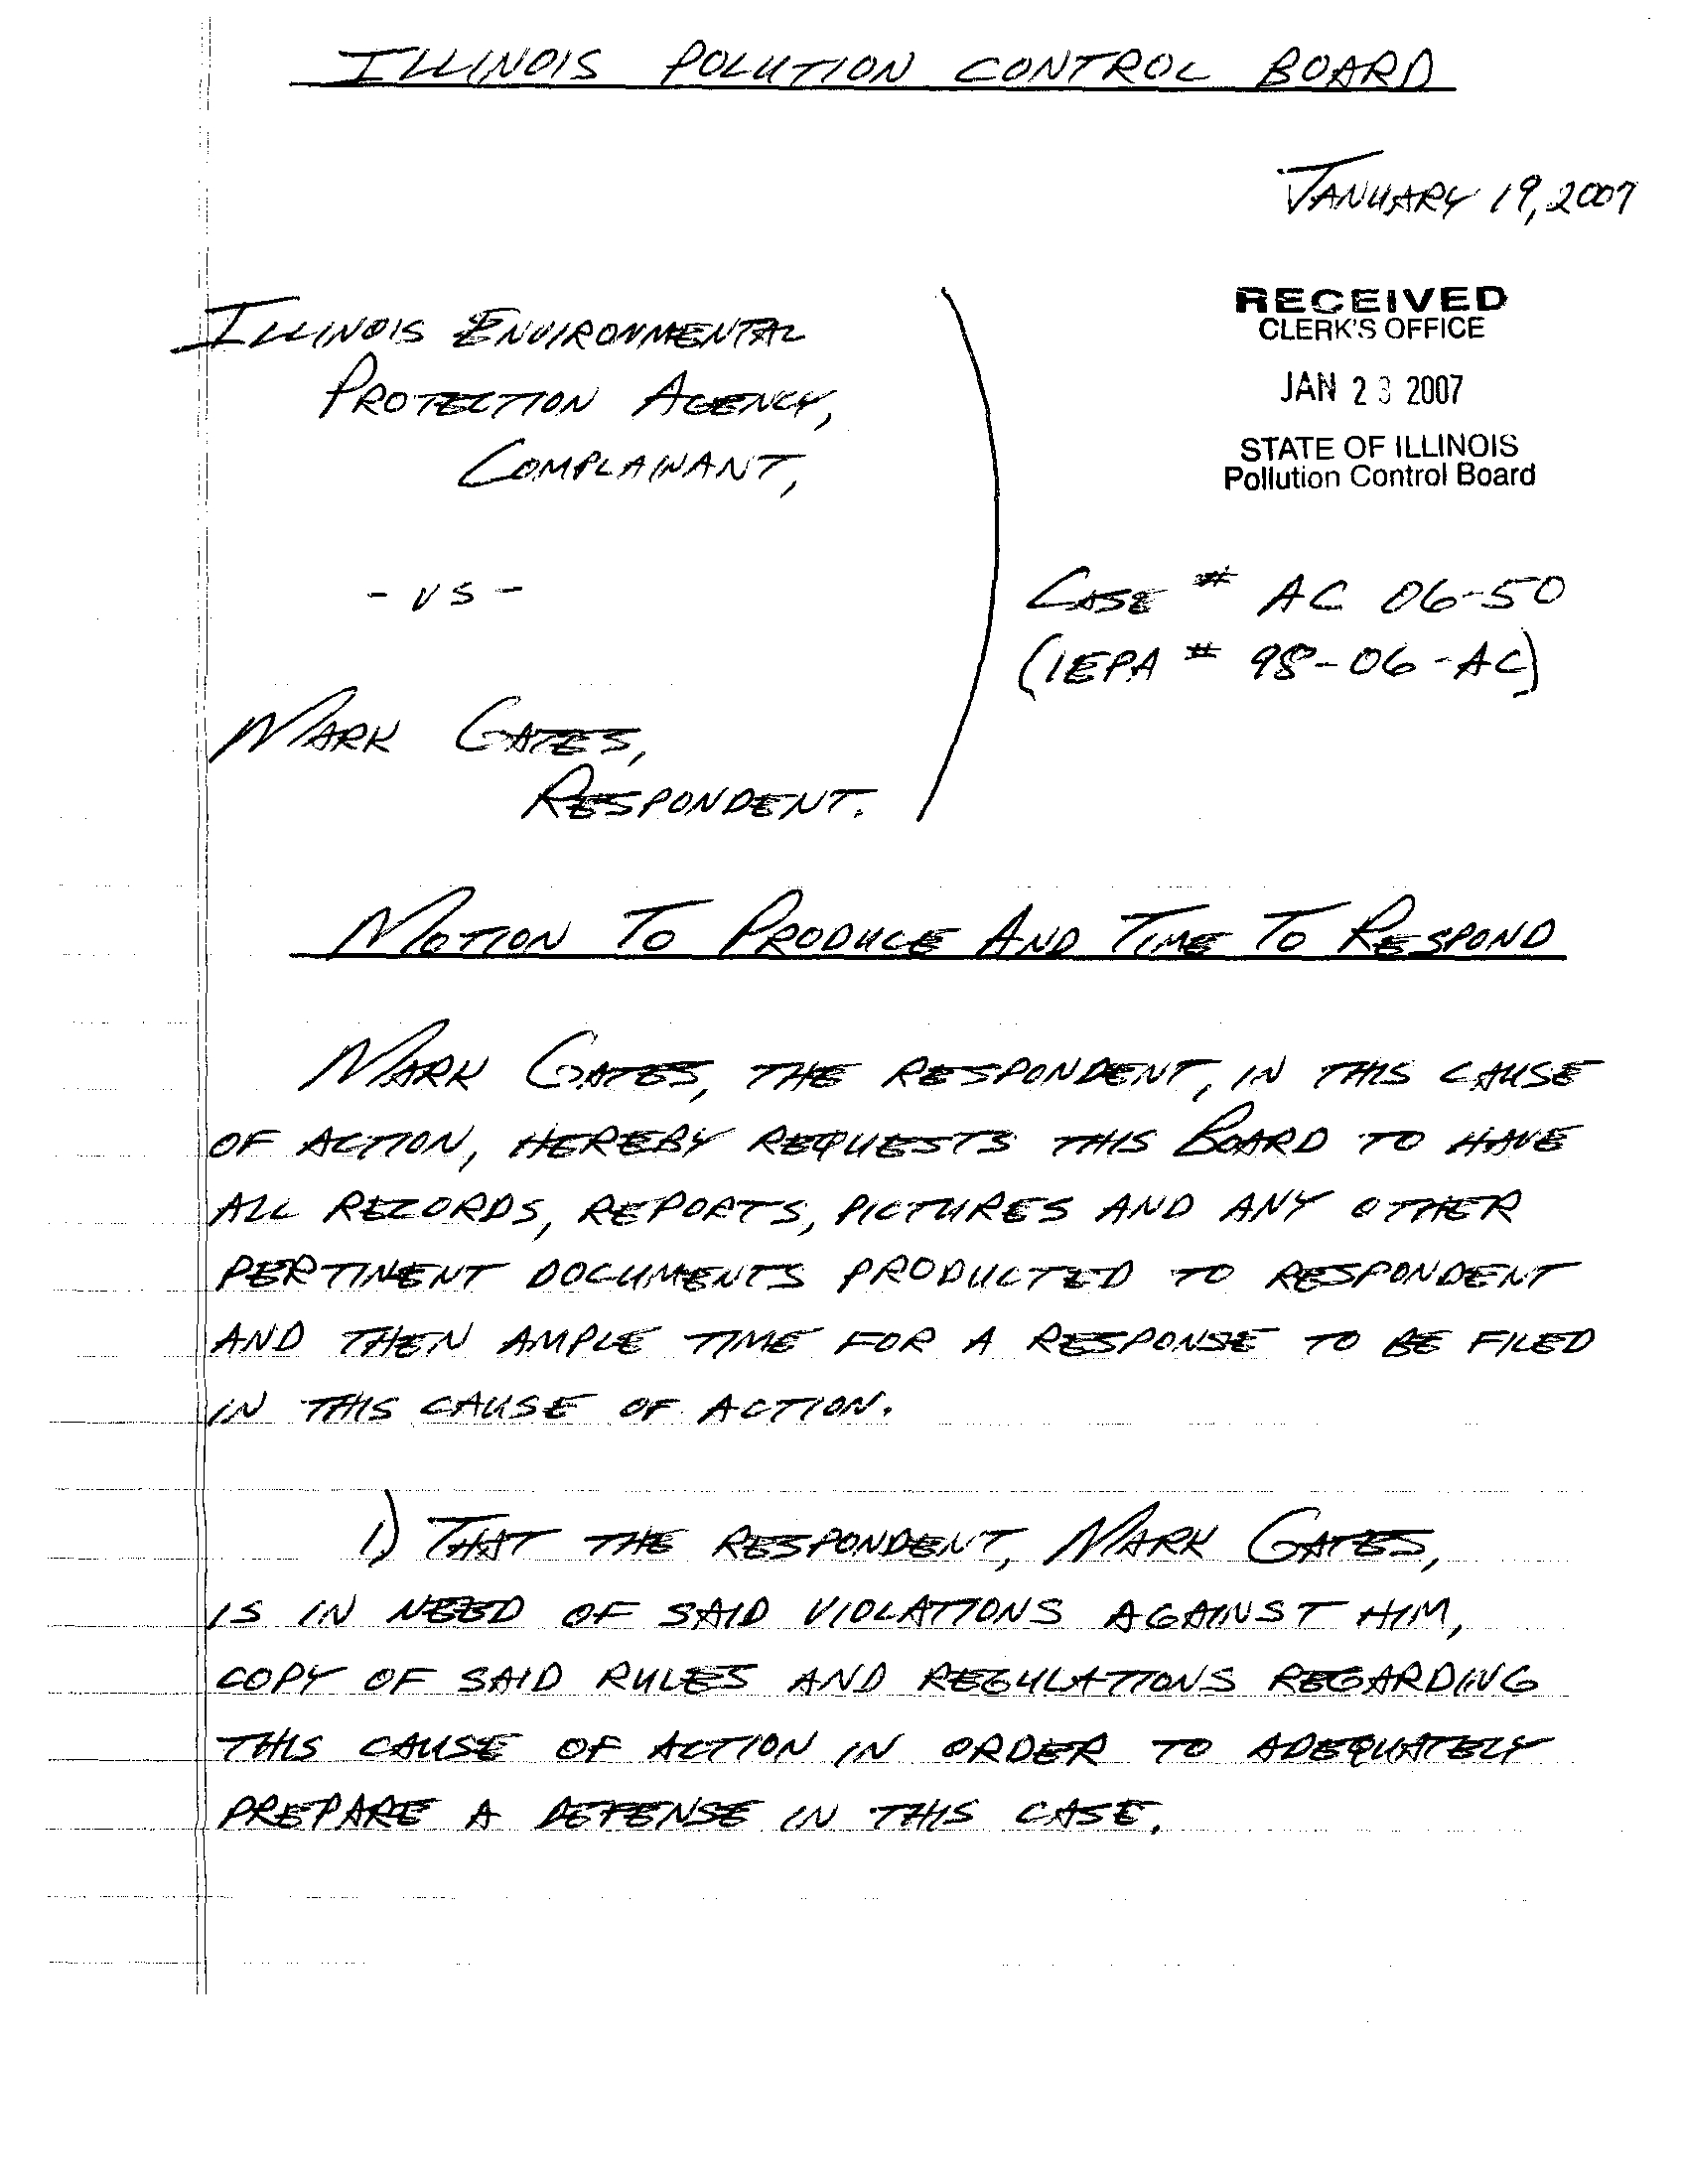 ILLINOIS POLUTION CONTROL BOARD
JANUARY 19, 2007
RECEIVED
CLERK'S OFFICE
JAN 23 2007
STATE OF ILLINOIS
Pollution Control Board
ILLINOIS ENVIRONMENTAL
PROTECTION AGENCY,
COMPLAINANT,
- VS -
CASE # AC 06-50
(IEPA # 98-06-AC)
MARK GATES,
RESPONDENT.
MOTION TO PRODUCE AND TIME TO RESPOND
MARK GATES, THE RESPONDENT, IN THIS CAUSE
OF ACTION, HEREBY REQUESTS THIS BOARD TO HAVE
ALL RECORDS, REPORTS, PICTURES AND ANY OTHER
PERTINENT DOCUMENTS PRODUCTED TO RESPONDENT
AND THEN AMPLE TIME FOR A RESPONSE TO BE FILED
IN THIS CAUSE OF ACTION.
1.) THAT THE RESPONDENT, MARK GATES,
IS IN NEED OF SAID VIOLATIONS AGAINST HIM,
COPY OF SAID RULES AND REGULATIONS REGARDING
THIS CAUSE OF ACTION IN ORDER TO ADEQUATELY
PREPARE A DEFENSE IN THIS CASE.